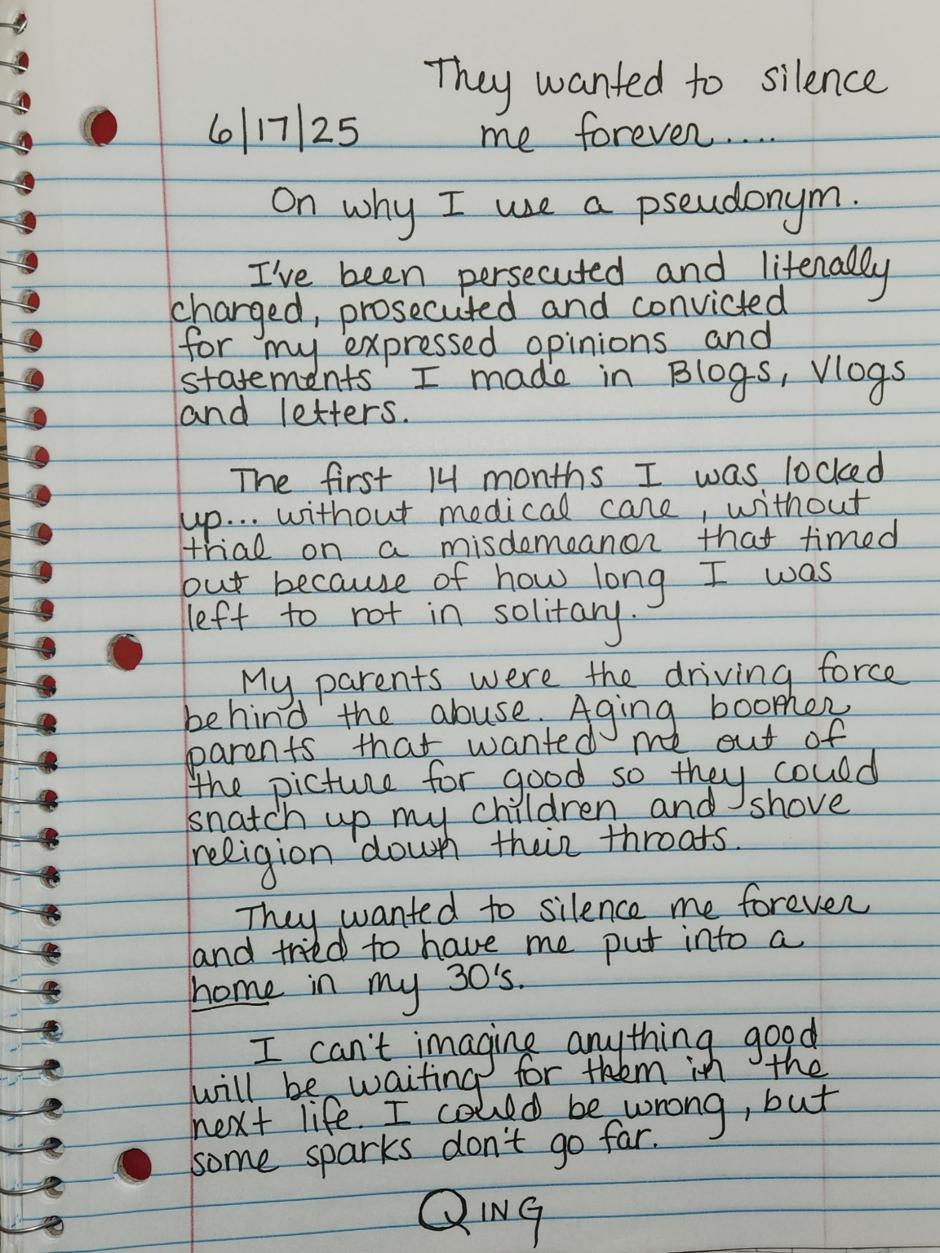 They wanted to silence
6/17/25 me forever.....
On why I use a pseudonym.
I've been persecuted and literally
charged, prosecuted and convicted
for my expressed opinions and
statements I made in Blogs, Vlogs
and letters.
The first 14 months I was locked
up... without medical care, without
trial on a misdemeanor that timed
out because of how long I was
left to rot in solitary.
My parents were the driving force
behind the abuse. Aging boomer
parents that wanted me out of
the picture for good so they could
snatch up my children and shove
religion down their throats.
They wanted to silence me forever
and tried to have me put into a
home in my 30's.
I can't imagine anything good
will be waiting for them in the
next life. I could be wrong, but
some sparks don't go far.
QING